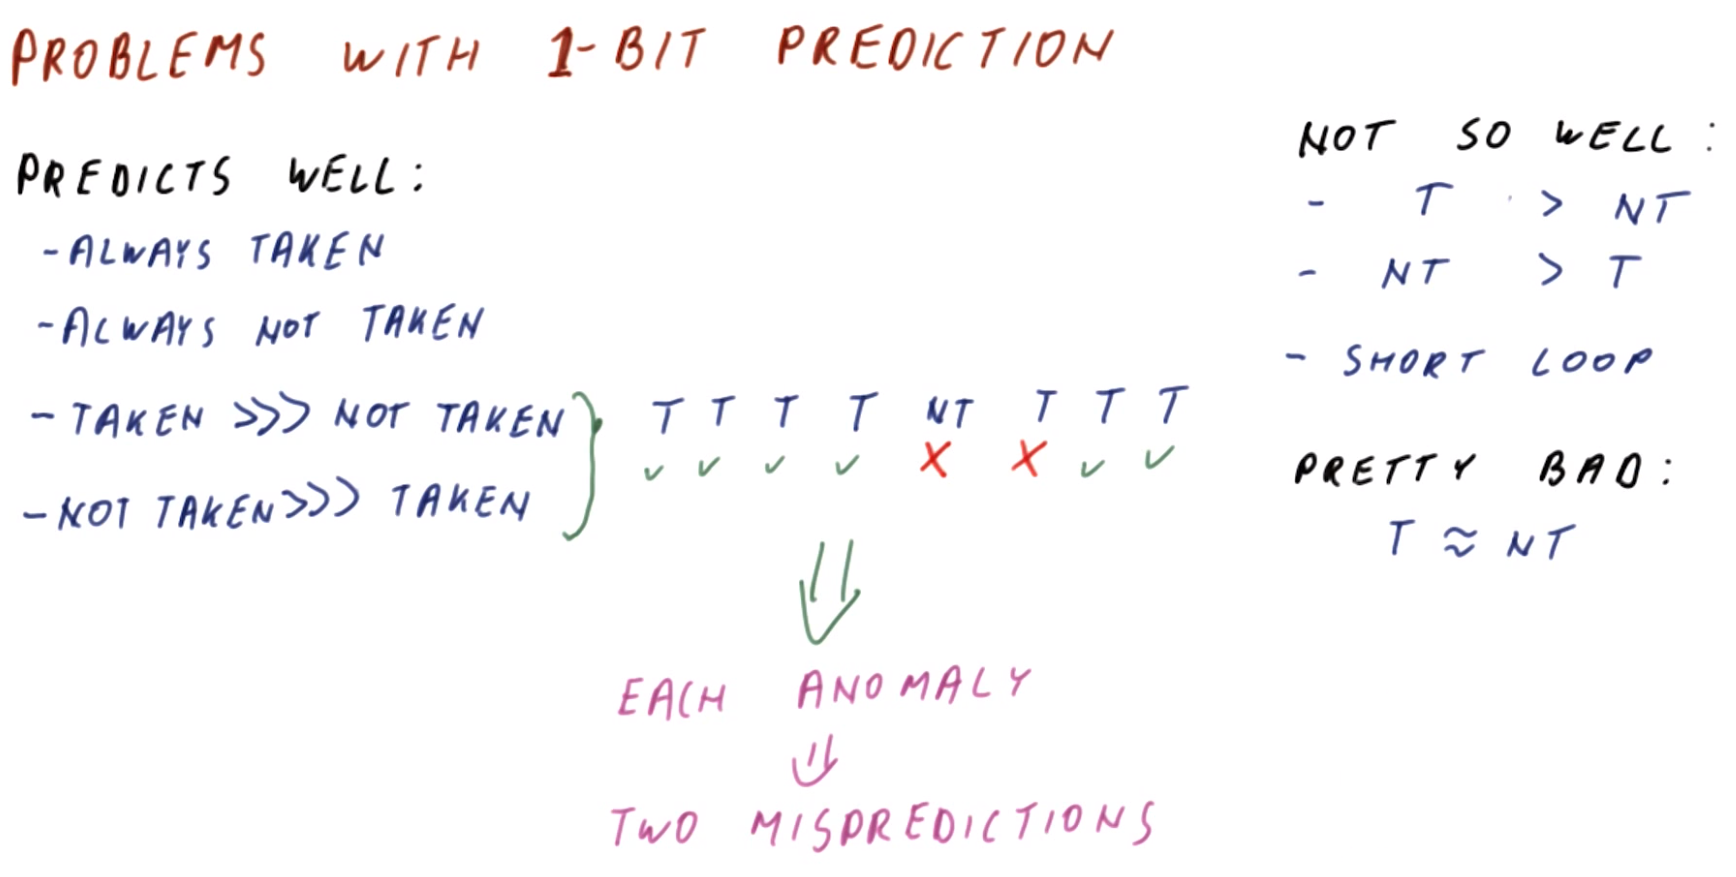 PROBLEMS WITH 1-BIT PREDICTION
PREDICTS WELL:
-ALWAYS TAKEN
-ALWAYS NOT TAKEN
- TAKEN >>> NOT TAKEN
- NOT TAKEN >>> TAKEN
T T T T NT T T T
✓ ✓ ✓ ✓ X X ✓ ✓
⇓
EACH ANOMALY
⇓
TWO MISPREDICTIONS
NOT SO WELL:
- T > NT
- NT > T
- SHORT LOOP
PRETTY BAD:
T ≈ NT